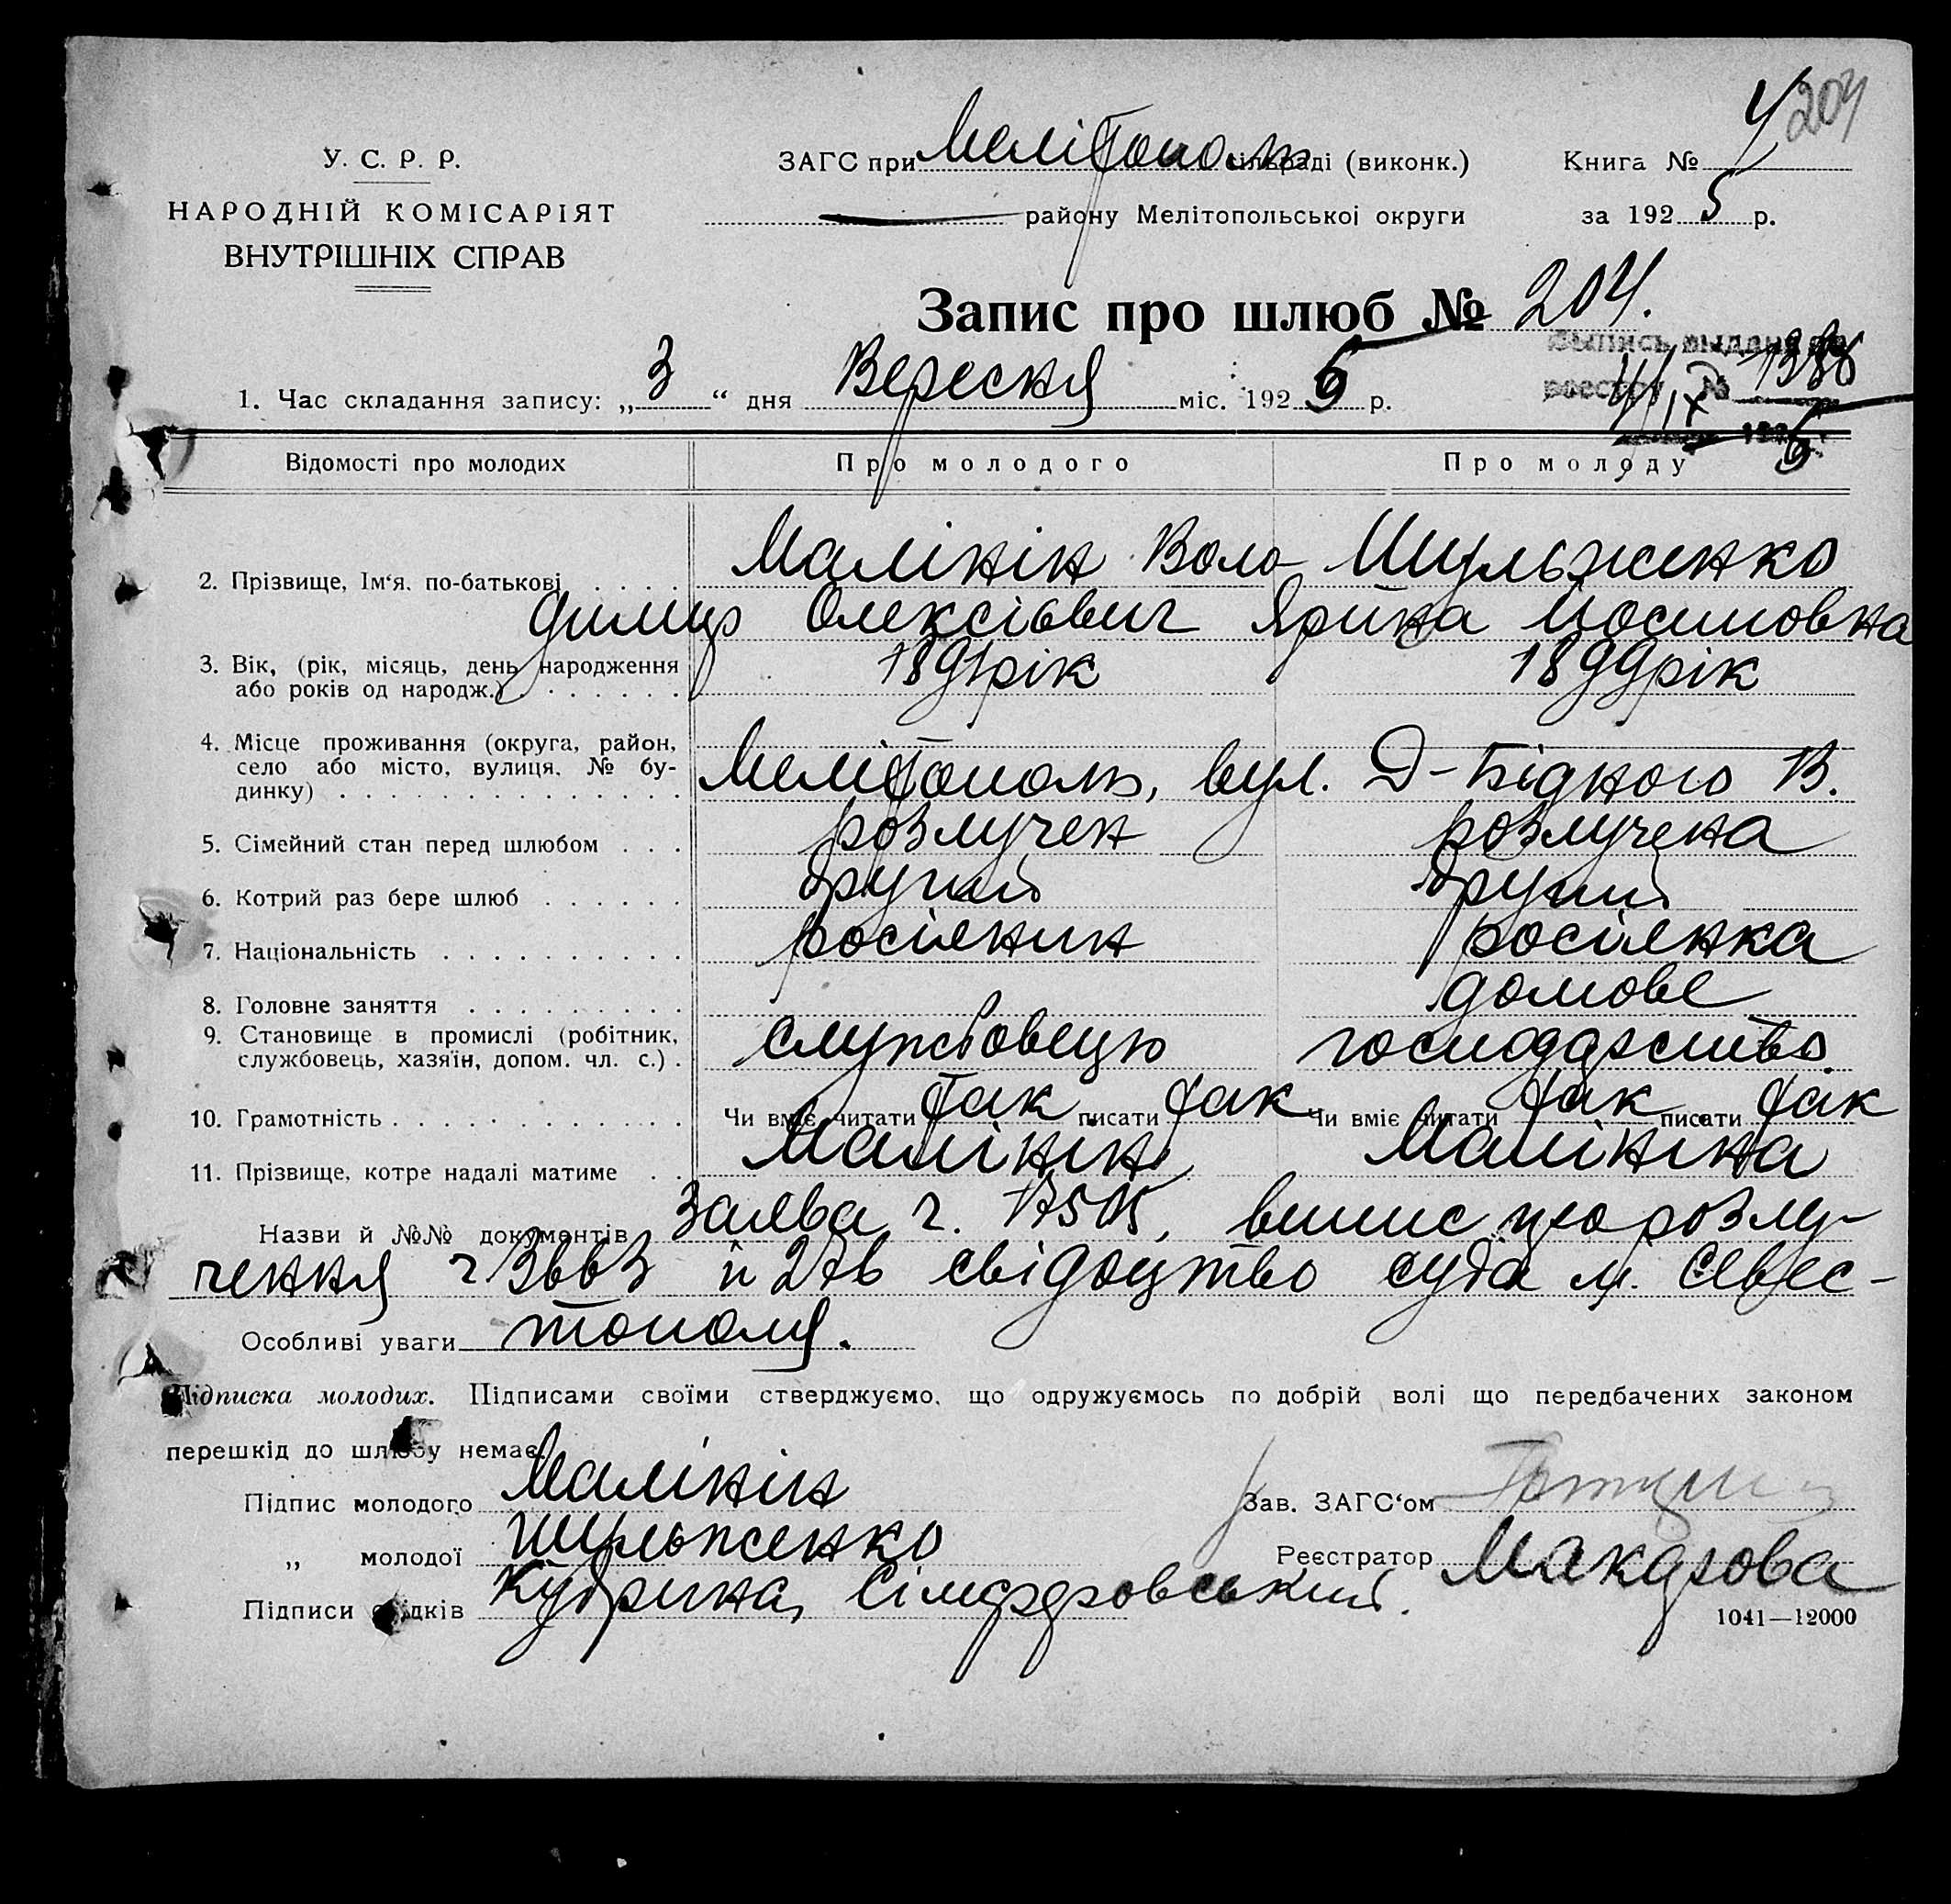 204
У. С. Р. Р.
НАРОДНІЙ КОМІСАРІЯТ
ВНУТРІШНІХ СПРАВ
ЗАГС при Мелітополь сільраді (виконк.)
Книга №
району Мелітопольської округи
за 1925 р.
Запис про шлюб № 204.
Выпись выдана
реестру №
1. Час складання запису: „3“ дня Вересня міс. 192 р.
Відомості про молодих
Про молодого
Про молоду
2. Прізвище, Ім‘я, по-батькові
Малінін Воло- Шульженко
димир Олексієвич Ярина Йосиповна
3. Вік, (рік, місяць, день народження
або років од народж.)
1891 рік 1899 рік
4. Місце проживання (округа, район,
село або місто, вулиця, № бу-
динку)
Мелітополь, вул. Д-Бідного
5. Сімейний стан перед шлюбом розлучен розлучена
6. Котрий раз бере шлюб другий другий
7. Національність росіянин росіянка
8. Головне заняття домове
9. Становище в промислі (робітник,
службовець, хазяїн, допом. чл. с.)
службовець господарство
10. Грамотність Чи вміє читати так писати так Чи вміє читати так писати так
11. Прізвище, котре надалі матиме Малінін Малініна
Назви й №№ документів заява ч. випис про розлу-
чення й свідоцтво суда м. Севас-
Особливі уваги тополя.
Підписка молодих. Підписами своїми стверджуємо, що одружуємось по добрій волі що передбачених законом
перешкід до шлюбу немає.
Підпис молодого Малінін
Зав. ЗАГС‘ом
„ молодої Шульженко
Реєстратор Макарова
Підписи свідків Кудрина,
1041—12000